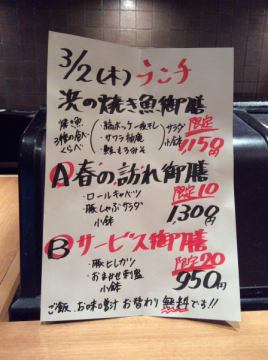 3/2(木)ランチ
浜の焼き魚御膳
焼き魚
3種の食べ
くらべ
・縞ホッケ一夜干し
・サワラ柚庵
・鮭もろみそ
サラダ
小鉢
限定
1150円
A春の訪れ御膳
・ロールキャベツ
・豚しゃぶサラダ
小鉢
限定10
1300円
Bサービス御膳
・豚ヒレカツ
・おまかせ刺盛
小鉢
限定20
950円
ご飯、お味噌汁 お替わり無料です!!